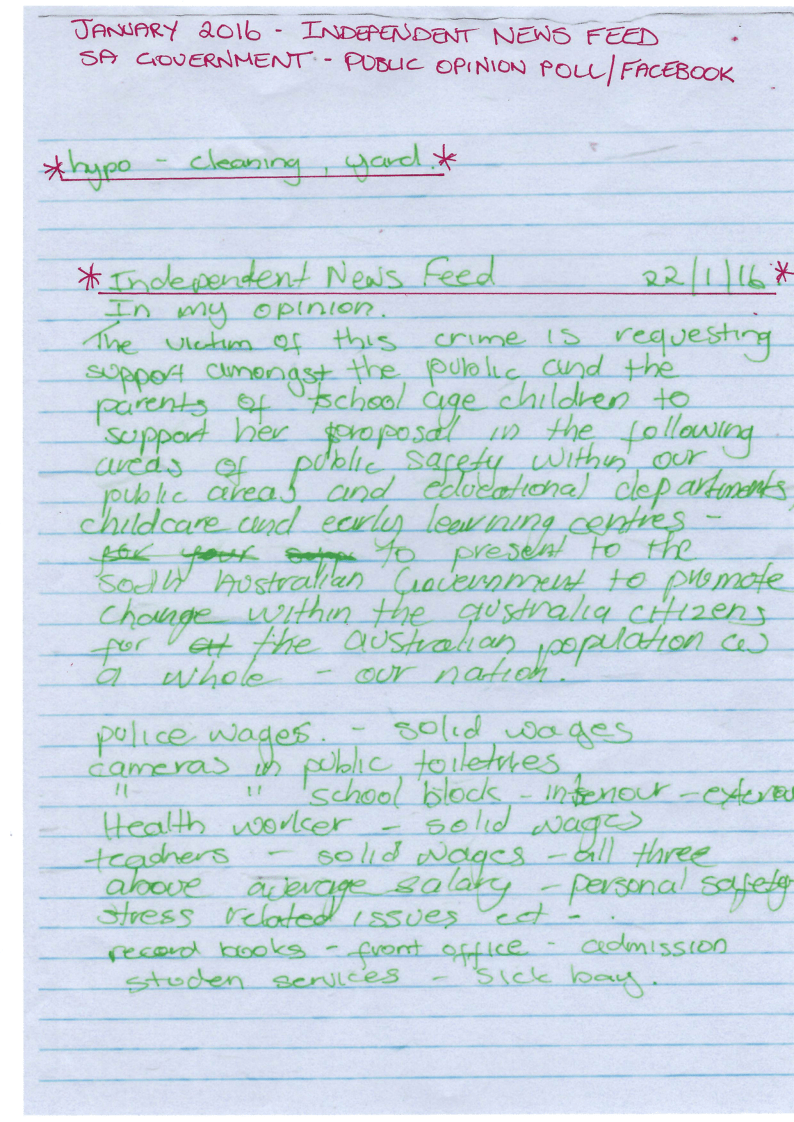 JANUARY 2016 - INDEPENDENT NEWS FEED
SA GOVERNMENT - PUBLIC OPINION POLL/FACEBOOK
*hypo - cleaning, yard.*
*Independent News Feed 22/1/16*
In my opinion.
The victim of this crime is requesting
support amongst the public and the
parents of school age children to
support her proposal in the following
areas of public safety within our
public areas and educational departments,
childcare and early learning centres -
for your to present to the
South Australian Government to promote
change within the australia citizens
for at the australian population as
a whole - our nation.
police wages. - solid wages
cameras in public toiletries
" " school block - interiour -
Health worker - solid wages
teachers - solid wages - all three
above average salary - personal safety
stress related issues ect -.
record books - front office - admission
studen services - sick bay.